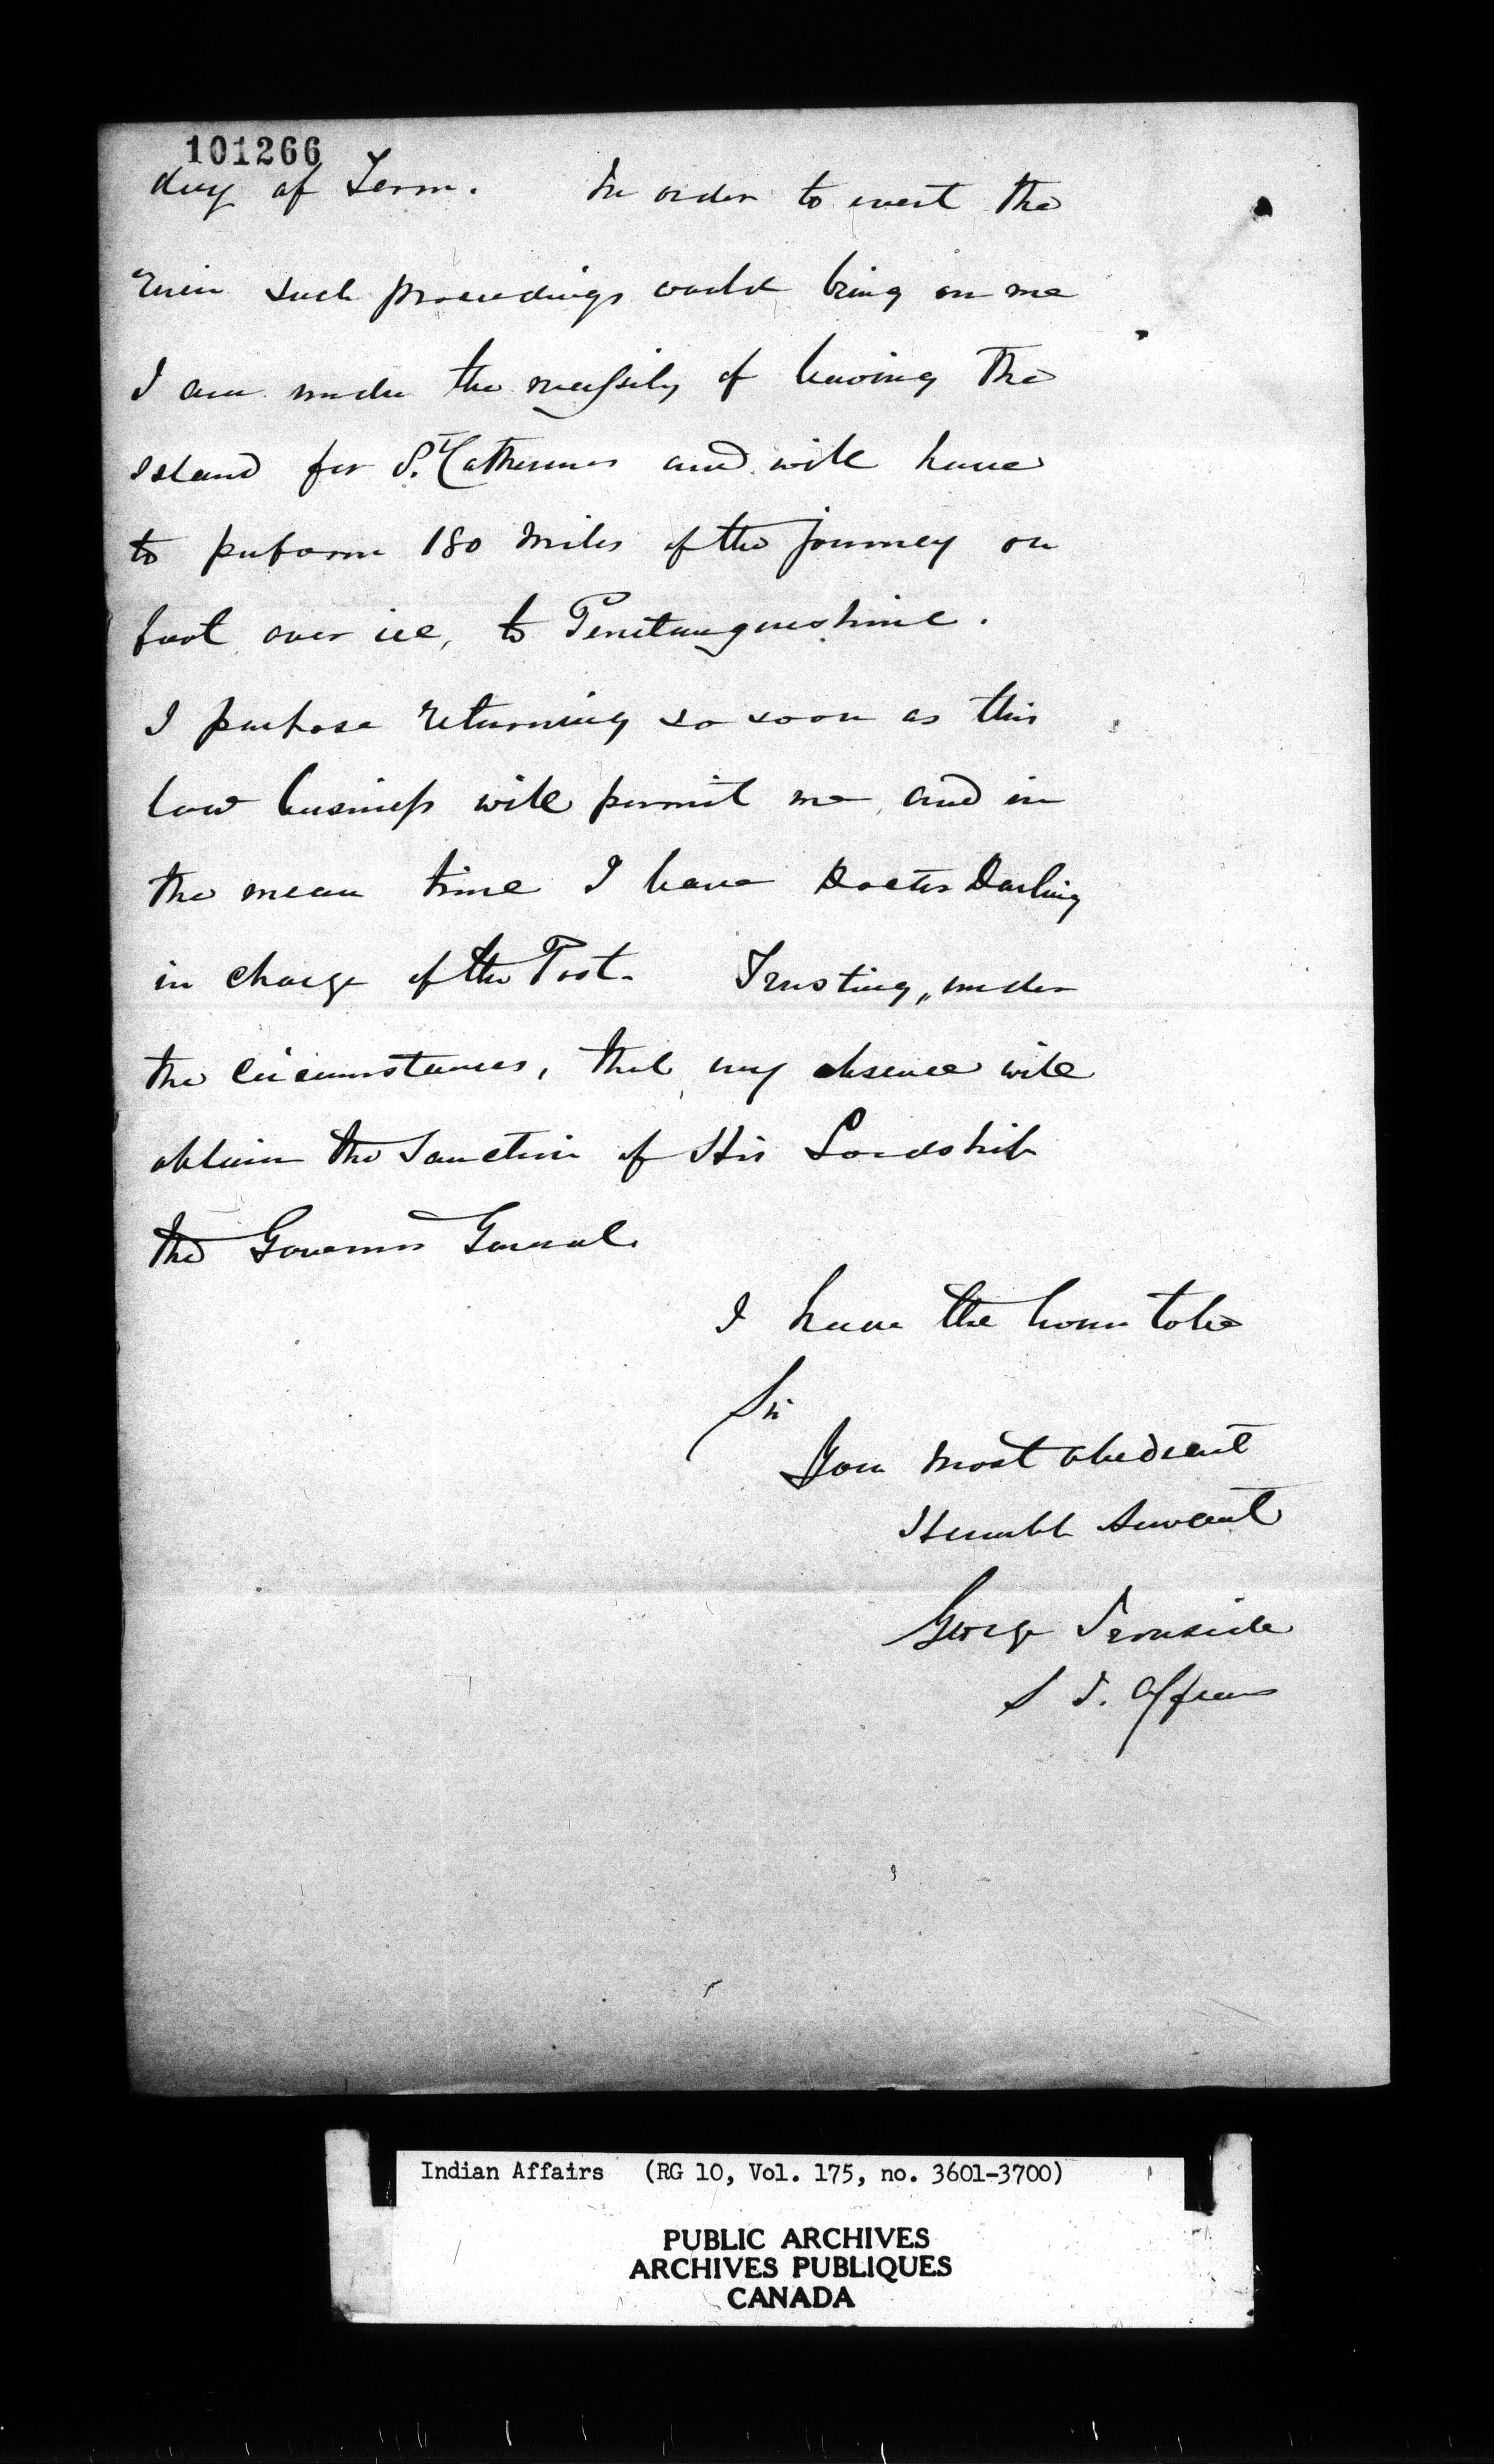 101266
day of Term. In order to avert the
ruin such proceedings would bring on me
I am under the necessity of leaving the
Island for St. Catherines and will have
to perform 180 Miles of the journey on
foot over ice, to Penetanguishine.
I purpose returning so soon as this
law business will permit me, and in
the mean time I leave Doctor Darling
in charge of the Post. Trusting, under
the circumstances, that my absence will
obtain the Sanction of His Lordship
the Governor General.
I have the honor to be
Sir
Your most obedient
Humble Servant
George Ironside
S I. Affairs
Indian Affairs (RG 10, Vol. 175, no. 3601-3700)
PUBLIC ARCHIVES
ARCHIVES PUBLIQUES
CANADA